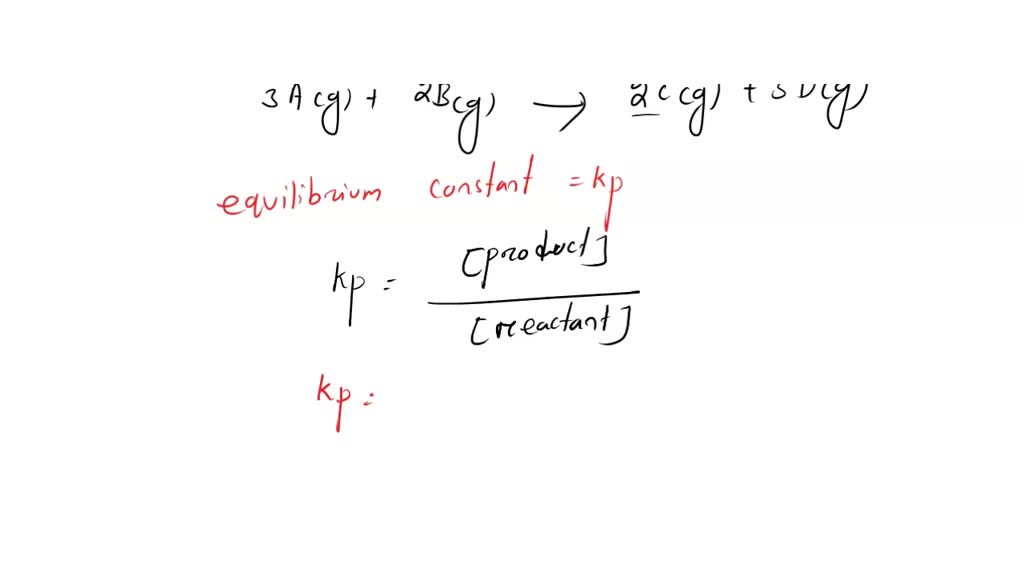 3A(g) + 2B(g) → 2C(g) + 3D(g)
equilibrium constant = kp
kp = [product] / [reactant]
kp =